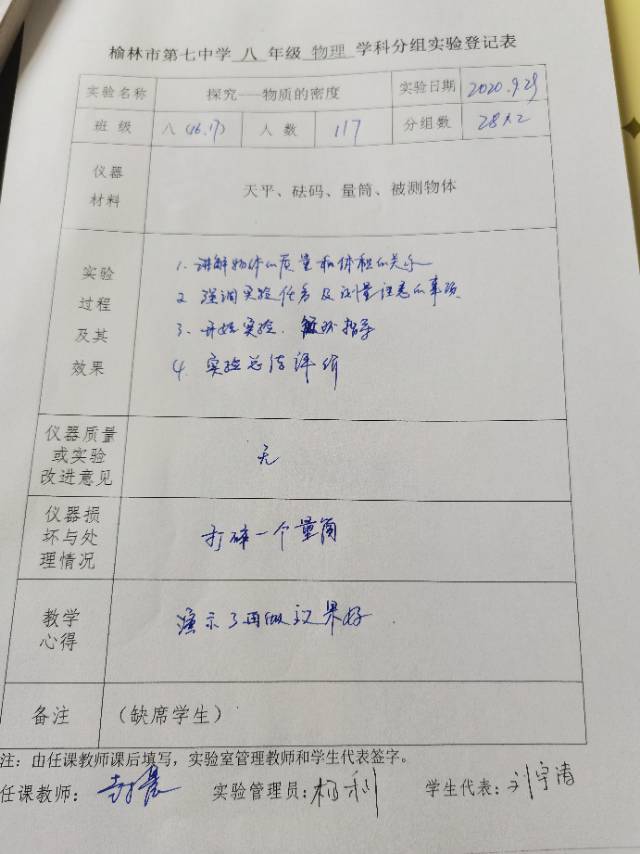 榆林市第七中学 八 年级 物理 学科分组实验登记表
实验名称 探究---物质的密度 实验日期 2020.9.29
班 级 八(16.17) 人 数 117 分组数 28×2
仪器
材料
天平、砝码、量筒、被测物体
实验
过程
及其
效果
1. 讲解物体的质量和体积的关系
2 强调实验任务及测量注意的事项
3. 开始实验. 指导
4. 实验总结评价
仪器质量
或实验
改进意见
无
仪器损
坏与处
理情况
打碎一个量筒
教学
心得
演示了再做效果好.
备注 (缺席学生)
注：由任课教师课后填写，实验室管理教师和学生代表签字。
任课教师： 实验管理员：杨利 学生代表：刘宇清